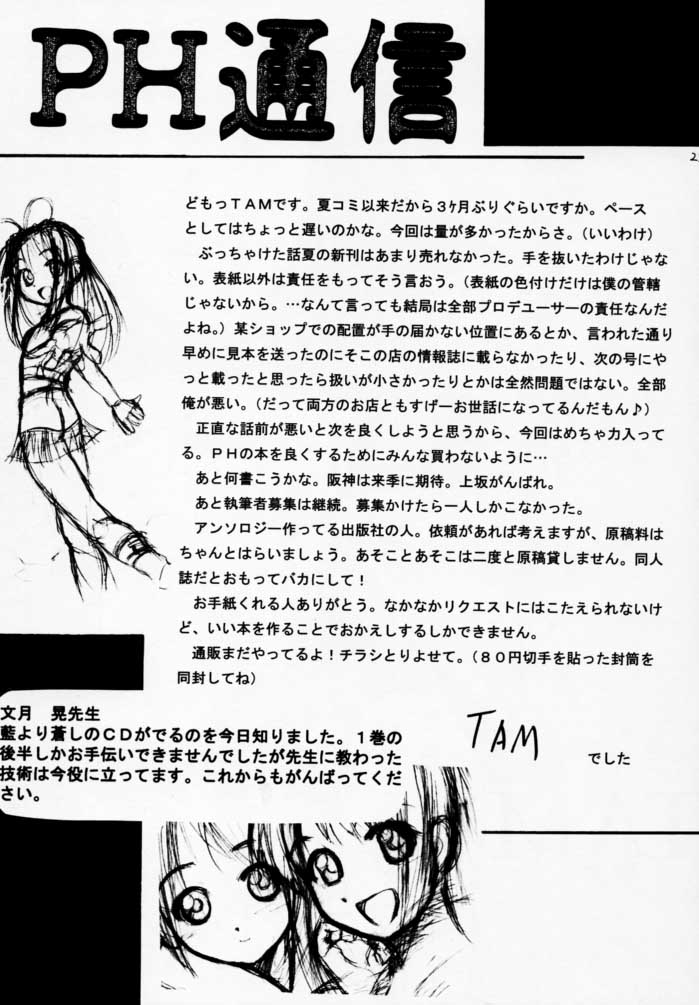 PH通信
2
どもっTAMです。夏コミ以来だから3ヶ月ぶりぐらいですか。ペース
としてはちょっと遅いのかな。今回は量が多かったからさ。(いいわけ)
ぶっちゃけた話夏の新刊はあまり売れなかった。手を抜いたわけじゃな
い。表紙以外は責任をもってそう言おう。(表紙の色付けだけは僕の管轄
じゃないから。…なんて言っても結局は全部プロデューサーの責任なんだ
よね。)某ショップでの配置が手の届かない位置にあるとか、言われた通り
早めに見本を送ったのにそこの店の情報誌に載らなかったり、次の号にや
っと載ったと思ったら扱いが小さかったりとかは全然問題ではない。全部
俺が悪い。(だって両方のお店ともすげーお世話になってるんだもん♪)
正直な話前が悪いと次を良くしようと思うから、今回はめちゃ力入って
る。PHの本を良くするためにみんな買わないように…
あと何書こうかな。阪神は来季に期待。上坂がんばれ。
あと執筆者募集は継続。募集かけたら一人しかこなかった。
アンソロジー作ってる出版社の人。依頼があれば考えますが、原稿料は
ちゃんとはらいましょう。あそことあそこは二度と原稿貸しません。同人
誌だとおもってバカにして!
お手紙くれる人ありがとう。なかなかリクエストにはこたえられないけ
ど、いい本を作ることでおかえしするしかできません。
通販まだやってるよ!チラシとりよせて。(80円切手を貼った封筒を
同封してね)
TAM でした
文月 晃先生
藍より蒼しのCDがでるのを今日知りました。1巻の
後半しかお手伝いできませんでしたが先生に教わった
技術は今役に立ってます。これからもがんばってくだ
さい。